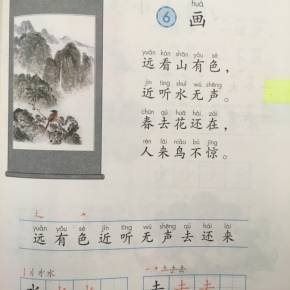 huà
6 画
yuǎn kàn shān yǒu sè
远看山有色，
jìn tīng shuǐ wú shēng
近听水无声。
chūn qù huā hái zài
春去花还在，
rén lái niǎo bù jīng
人来鸟不惊。
yuǎn yǒu sè jìn tīng wú shēng qù hái lái
远有色近听无声去还来
水
去